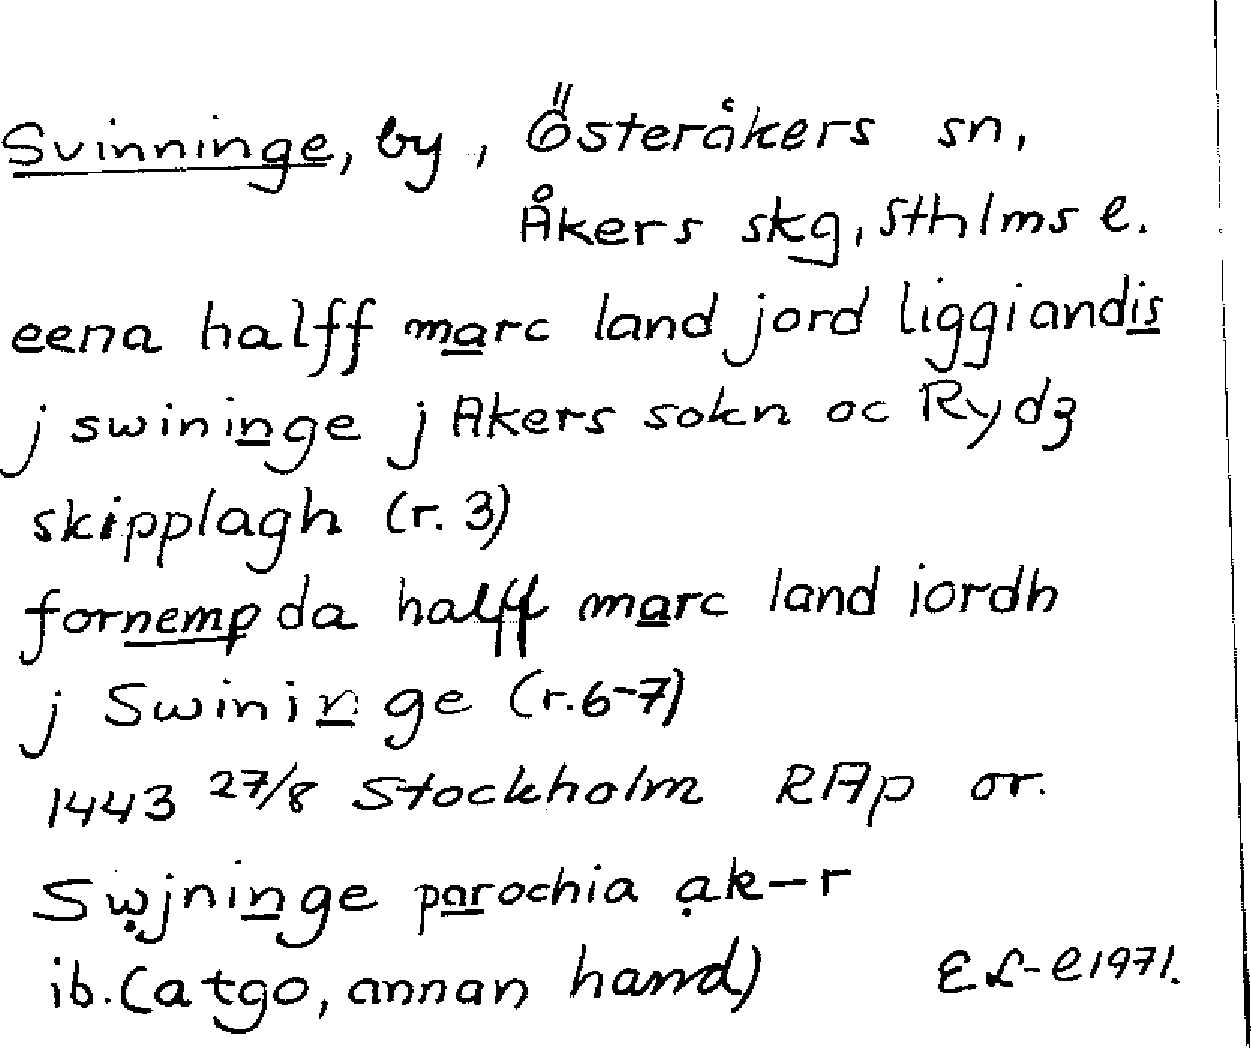 Svinninge, by, Österåkers sn,
Åkers skg, Sthlms l.
eena halff marc land jord liggiandis
j swininge j Akers sokn oc Rydʒ
skipplagh (r. 3)
fornempda halff marc land iordh
j Swininge (r.6-7)
1443 27/8 Stockholm RAp or.
Swjninge parochia ak-r
ib. (atgo, annan hand) EL-e 1971.